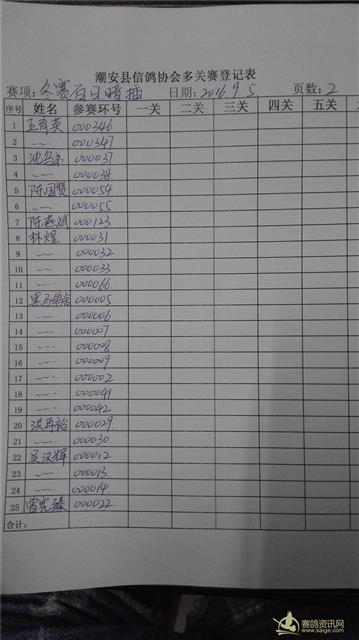 潮安县信鸽协会多关赛登记表
赛项: 冬赛百日暗插 日期: 2016.9.5 页数: 2
序号 姓名 参赛环号 一关 二关 三关 四关 五关
1 000346
2 〃 000347
3 000037
4 〃 000038
5 陈国贤 000054
6 〃 000055
7 陈燕斌 000123
8 林煌 000031
9 〃 000032
10 〃 000033
11 〃 000066
12 黑马鸽舍 000005
13 〃 000006
14 〃 000007
15 〃 000008
16 〃 000009
17 〃 000002
18 〃 000041
19 〃 000042
20 洪再 000029
21 〃 000030
22 吴汉辉 000012
23 〃 000013
24 〃 000014
25 000022
合计:
赛鸽资讯网
www.saige.com